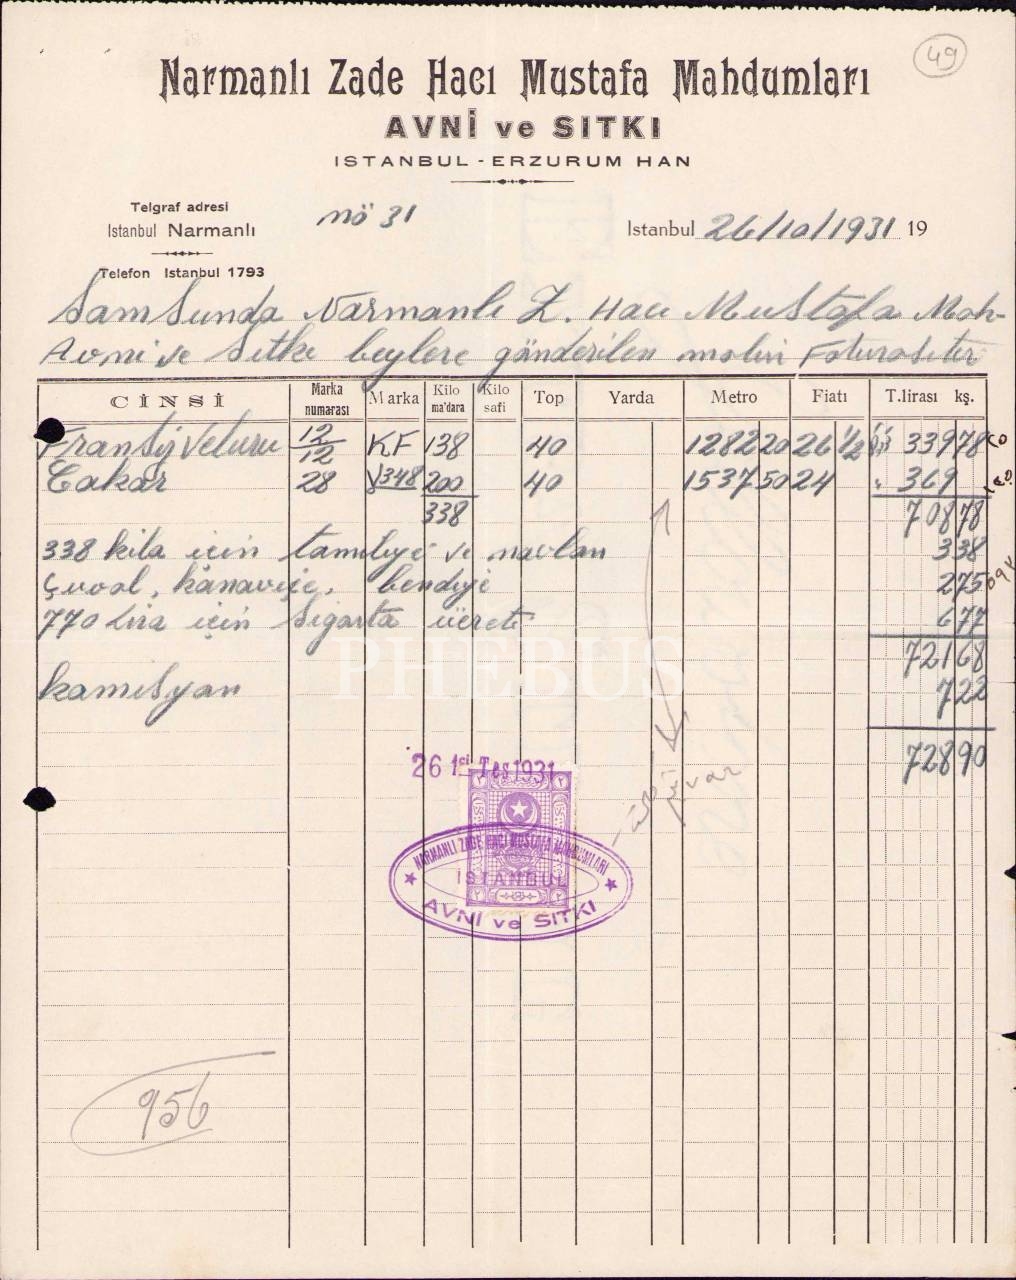 49
Narmanlı Zade Hacı Mustafa Mahdumları
AVNİ ve SITKI
ISTANBUL - ERZURUM HAN
Telgraf adresi
Istanbul Narmanlı
Telefon Istanbul 1793
Nö 31
Istanbul 26/10/1931 19
Samsunda Narmanlı Z. Hacı Mustafa Mah-
Avni ve Sıtkı beylere gönderilen malın Faturasıtır
CİNSİ Marka numarası Marka Kilo ma'dara Kilo safi Top Yarda Metro Fiatı T.lirası kş.
Veturu 12/12 KF 138 40 1282 20 26 1/2 339 78
Çakar 28 348 200 40 1537 50 24 369
338 708 78
338 kila için ve navlan 3 38
Çuval, kanaviçe, bendiye 2 75
770 Lira için Sigarta ücreti 6 77
721 68
kamisyan 7 22
728 90
PHEBUS
26 1ci Teş 1931
NARMANLI ZADE HACI MUSTAFA MAHDUMLARI
ISTANBUL
AVNİ ve SITKI
956